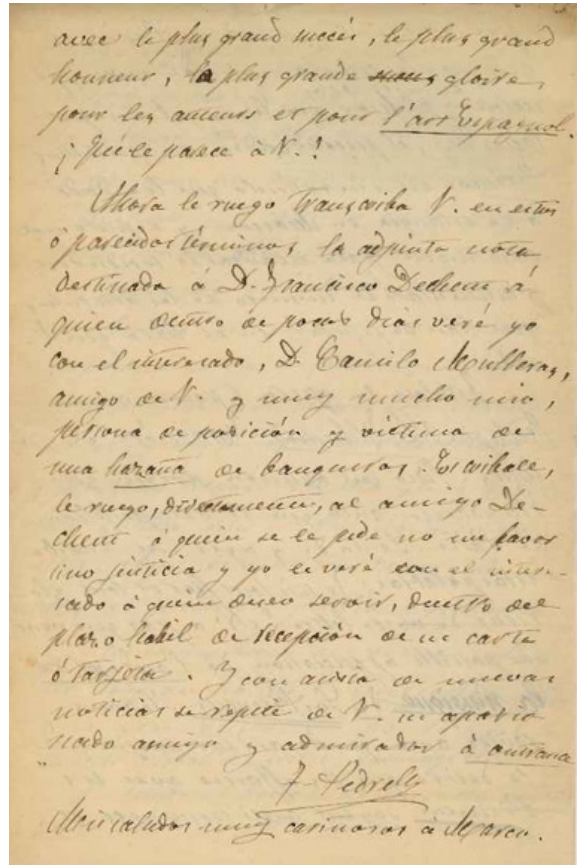 avec le plus grand succès, le plus grand
honneur, la plus grande gloire,
pour les auteurs et pour l'art Espagnol.
¡ Qué le parece á V.!
Ahora le ruego transcriba V. en estos
ó parecidos términos la adjunta nota
destinada á D. Francisco Dechent á
quien dentro de pocos dias veré yo
con el interesado, D. Camilo Mulleras,
amigo de V. y muy mucho mio,
persona de posición y victima de
una hazaña de banqueros. Escribale,
le ruego, directamente, al amigo De-
chent á quien se le pide no un favor
sino justicia y yo le veré con el intere-
sado á quien deseo servir, dentro del
plazo habil de recepción de su carta
ó tarjeta. Y con ansia de nuevas
noticias se repite de V. su apasio-
nado amigo y admirador á outrance
F. Pedrell
Mis saludos muy cariñosos á Marco.